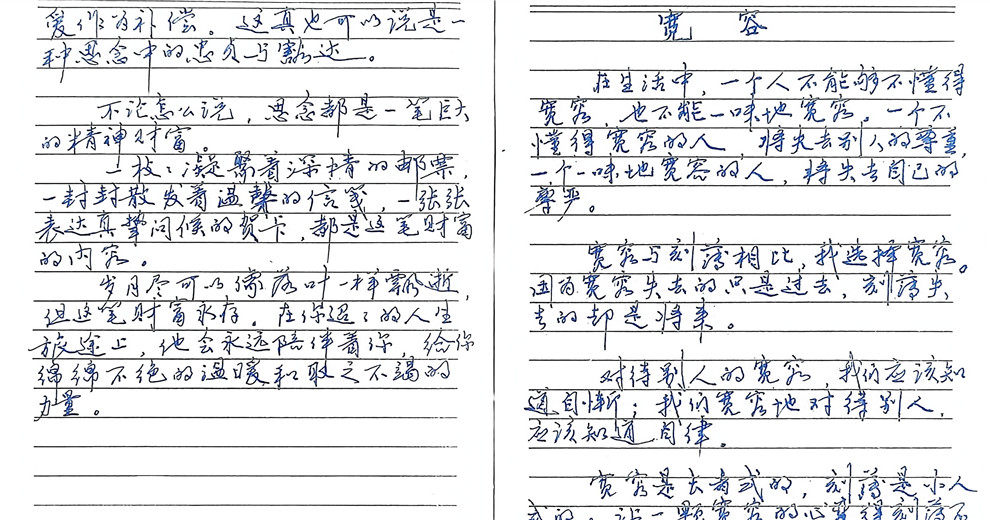 爱作为补偿。这真也可以说是一
种思念中的忠贞与豁达。
不论怎么说，思念都是一笔巨大
的精神财富。
一枚：凝聚着深情的邮票，
一封封散发着温馨的信笺，一张张
表达真挚问候的贺卡，都是这笔财富
的内容。
岁月尽可以像落叶一样飘逝，
但这笔财富永存。在你迢：的人生
旅途上，他会永远陪伴着你，给你
绵绵不绝的温暖和取之不竭的
力量。
宽容
在生活中，一个人不能够不懂得
宽容，也不能一味地宽容。一个不
懂得宽容的人，将失去别人的尊重，
一个一味地宽容的人，将失去自己的
尊严。
宽容与刻薄相比，我选择宽容。
因为宽容失去的只是过去，刻薄失
去的却是将来。
对待别人的宽容，我们应该知
道自惭；我们宽容地对待别人，
应该知道自律。
宽容是长者式的，刻薄是小人
式的。让一颗宽容的心变得刻薄不